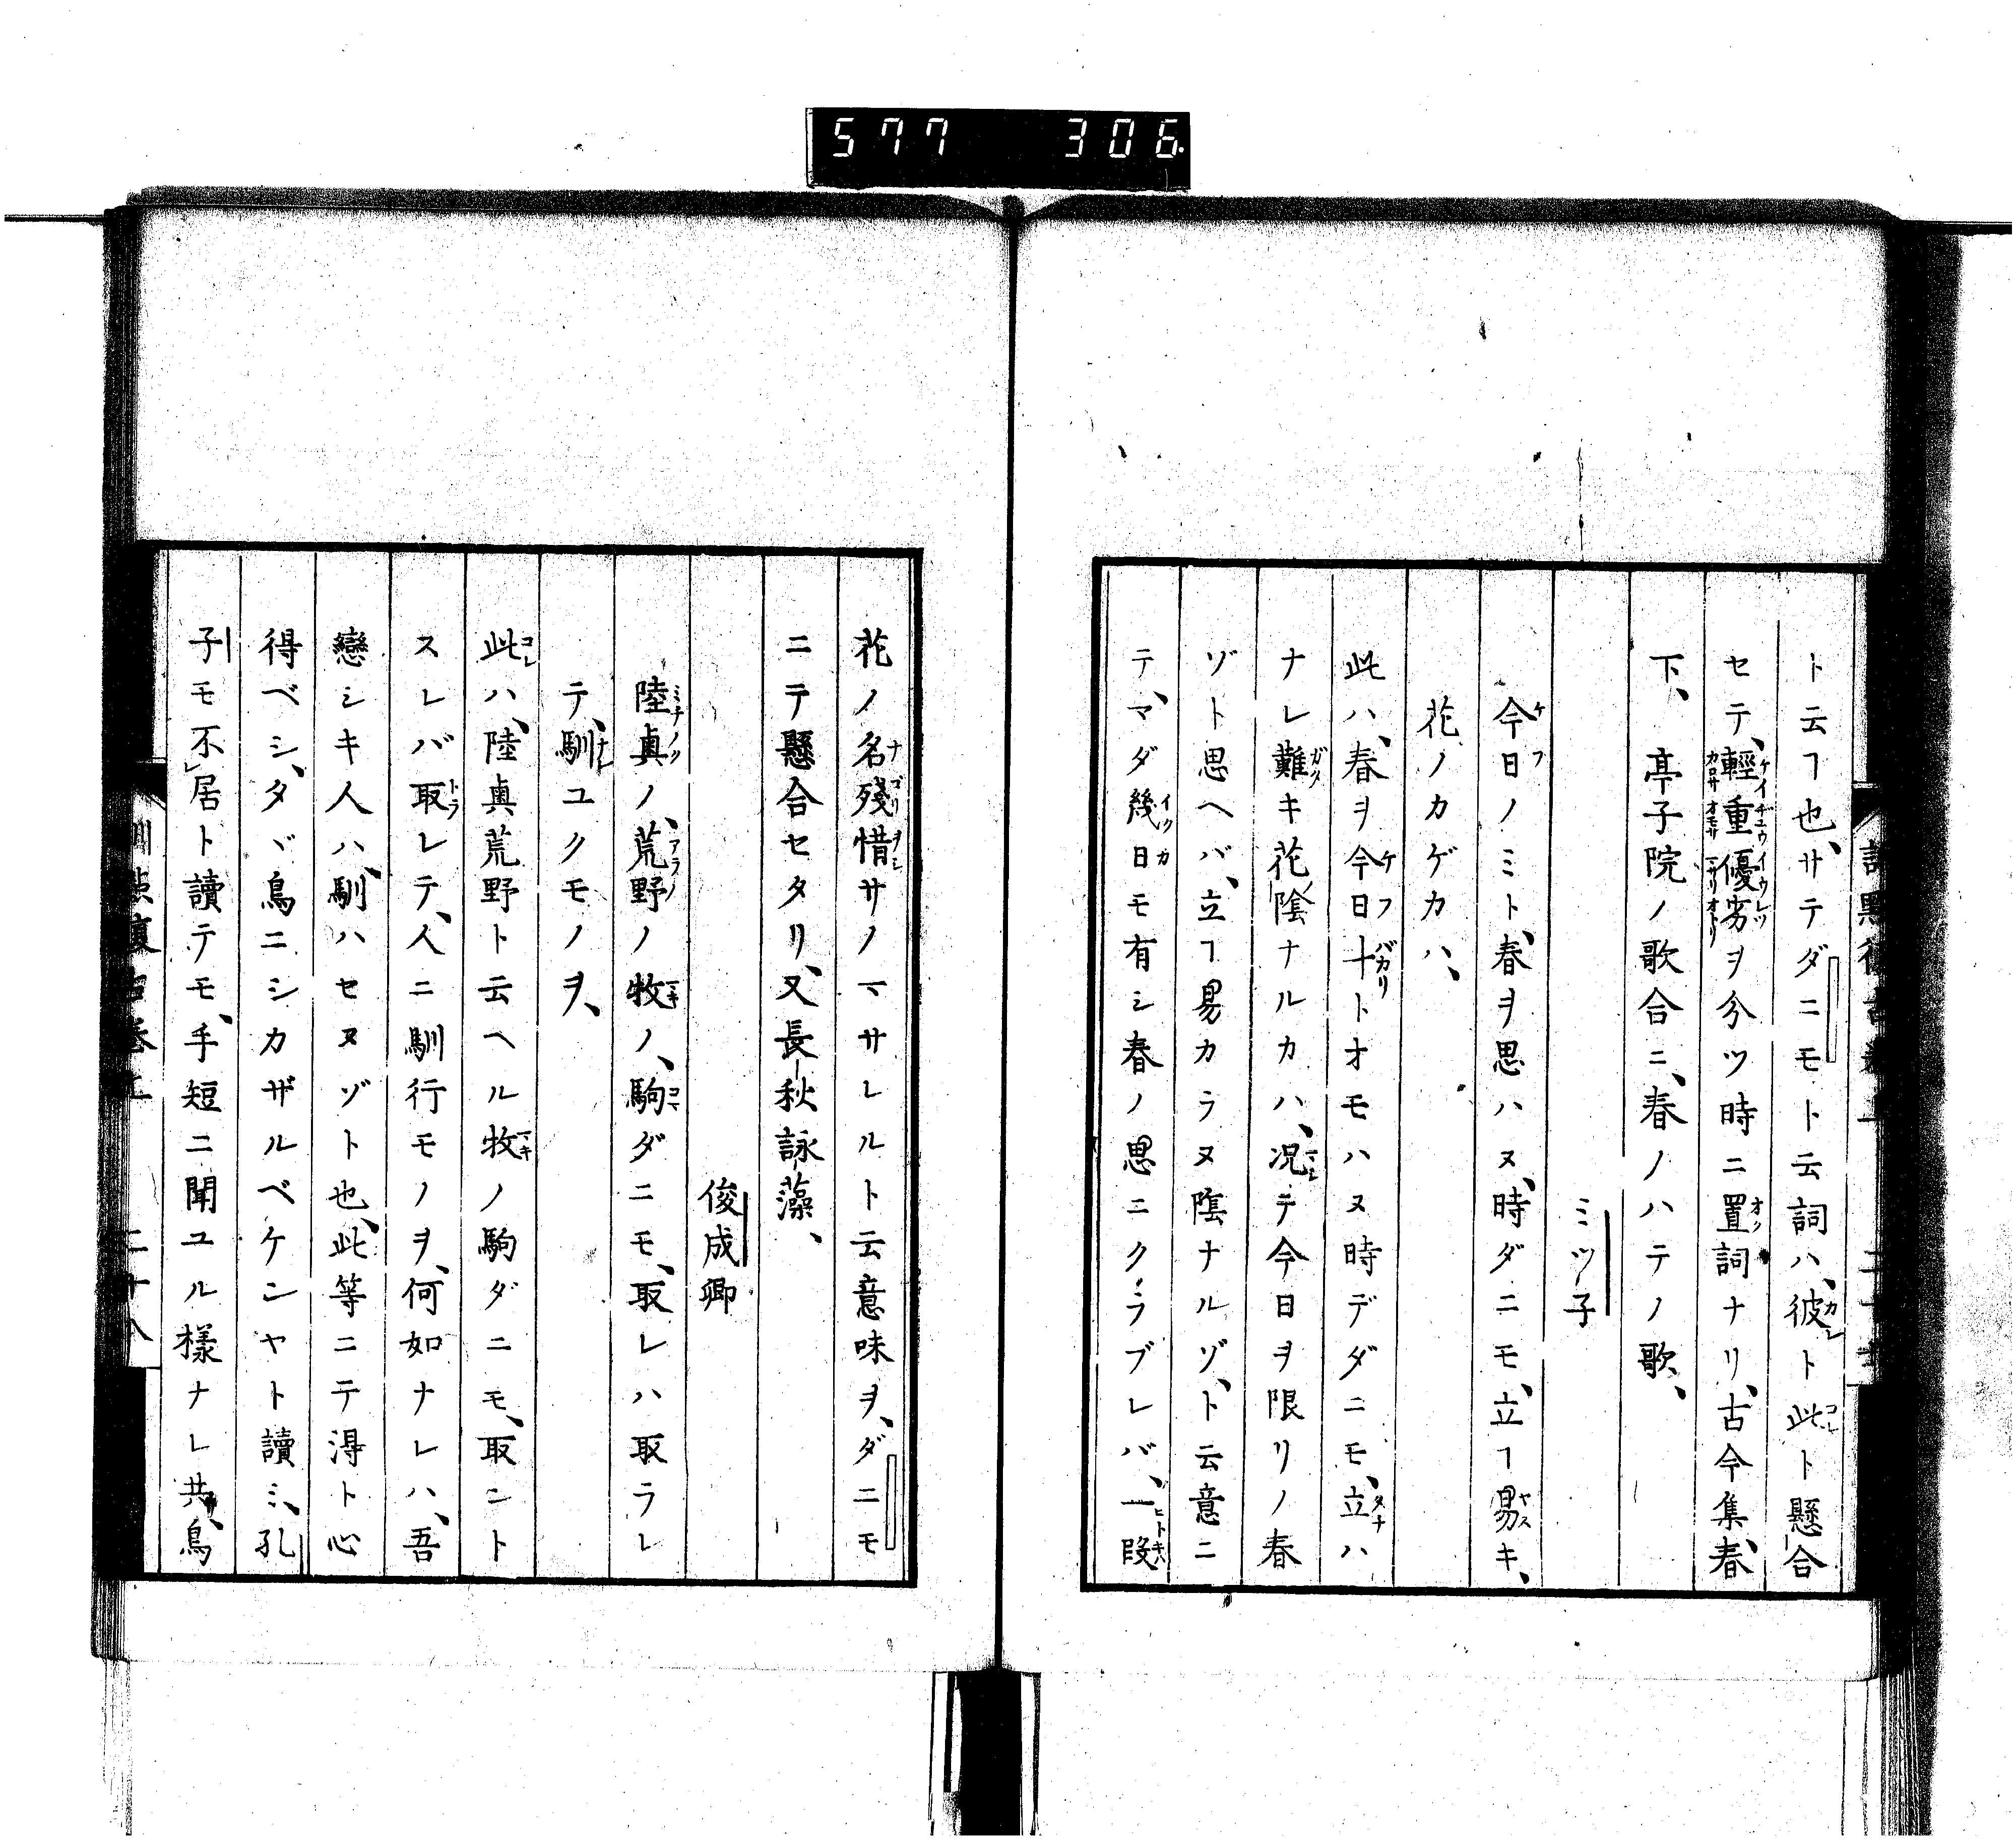 577 306
ト云ヿ也、サテダニモト云詞ハ、彼ト此ト懸合
セテ、輕重優劣ヲ分ツ時ニ置詞ナリ、古今集、春
下、亭子院ノ歌合ニ、春ノハテノ歌、
ミツ子
今日ノミト、春ヲ思ハヌ、時ダニモ、立ヿ易キ、
花ノカゲカハ、
此ハ、春ヲ今日計トオモハヌ時デダニモ、立ハ
ナレ難キ花陰ナルカハ、况テ今日ヲ限リノ春
ゾト思ヘバ、立ヿ易カラヌ陰ナルゾ、ト云意ニ
テ、マダ幾日モ有シ春ノ思ニクラブレバ、一段
花ノ名殘惜サノマサレルト云意味ヲ、ダニモ
ニテ懸合セタリ、又長秋詠藻、
俊成卿
陸奥ノ、荒野ノ牧ノ、駒ダニモ、取レハ取ラレ
テ、馴ユクモノヲ、
此ハ、陸奥荒野ト云ヘル牧ノ駒ダニモ、取ント
スレバ取レテ、人ニ馴行モノヲ、何如ナレハ、吾
戀シキ人ハ、馴ハセヌゾト也、此等ニテ淂ト心
得ベシ、タヾ鳥ニシカザルベケンヤト讀ミ、孔
子モ不居ト讀テモ、手短ニ聞ユル様ナレ共、鳥
二十八